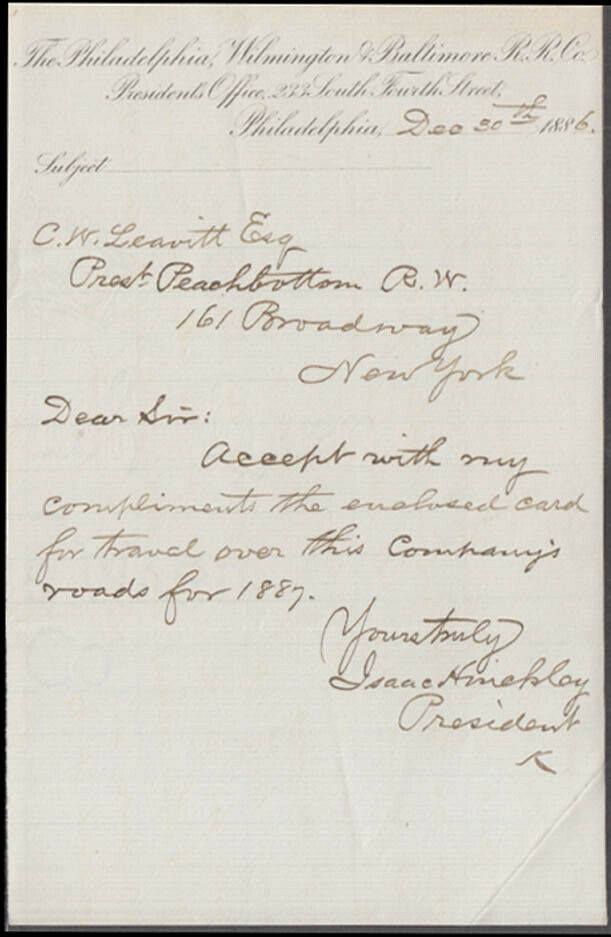 The Philadelphia, Wilmington & Baltimore R.R. Co.
President's Office, 233 South Fourth Street,
Philadelphia, Dec 30th 1886.
Subject
C. W. Leavitt Esq
Prest. Peachbottom R. W.
161 Broadway
New York
Dear Sir:
Accept with my
compliments the enclosed card
for travel over this Company's
roads for 1887.
Yours truly
Isaac Hinckley
President
K